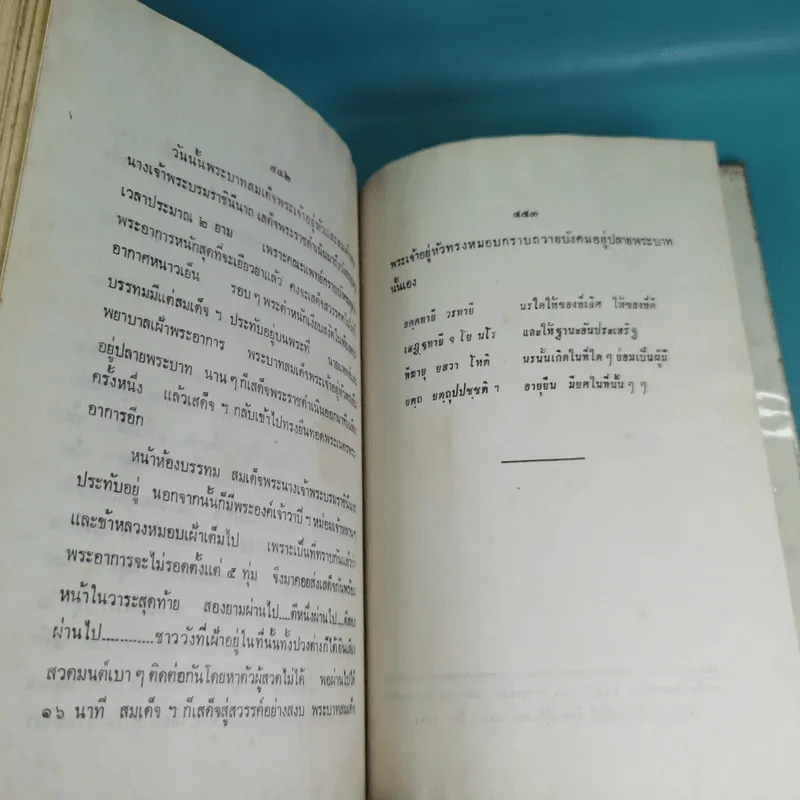 ๔๔๒
วันนั้นพระบาทสมเด็จพระเจ้าอยู่หัวและสมเด็จพระ
นางเจ้าพระบรมราชินีนาถ เสด็จพระราชดำเนินมาถึงวัง
เวลาประมาณ ๒ ยาม เพราะคณะแพทย์กราบบังคมทูลว่า
พระอาการหนักสุดที่จะเยียวยาแล้ว คงจะเสด็จสวรรคต
อากาศหนาวเย็น รอบ ๆ พระตำหนักเงียบสงัด
บรรทมมีแต่สมเด็จ ฯ ประทับอยู่บนพระที่ นายแพทย์
พยาบาลเฝ้าพระอาการ พระบาทสมเด็จพระเจ้าอยู่หัว
อยู่ปลายพระบาท นาน ๆ ก็เสด็จพระราชดำเนินออกมา
ครั้งหนึ่ง แล้วเสด็จ ฯ กลับเข้าไปทรงยืนทอดพระเนตร
อาการอีก
หน้าห้องบรรทม สมเด็จพระนางเจ้าพระบรมราชินีนาถ
ประทับอยู่ นอกจากนั้นก็มีพระองค์เจ้าวาปี ฯ หม่อมเจ้า
และข้าหลวงหมอบเฝ้าเต็มไป เพราะเป็นที่ทราบกันแล้วว่า
พระอาการจะไม่รอดตั้งแต่ ๕ ทุ่ม จึงมาคอยส่งเสด็จกันพร้อม
หน้าในวาระสุดท้าย สองยามผ่านไป....ตีหนึ่งผ่านไป....
ผ่านไป............ชาววังที่เฝ้าอยู่ในที่นั้นทั้งปวงต่างก็ได้ยินเสียง
สวดมนต์เบา ๆ ติดต่อกันโดยหาตัวผู้สวดไม่ได้ พอผ่านไปได้
๑๖ นาที สมเด็จ ฯ ก็เสด็จสู่สวรรค์อย่างสงบ พระบาทสมเด็จ
๔๔๓
พระเจ้าอยู่หัวทรงหมอบกราบถวายบังคมอยู่ปลายพระบาท
นั้นเอง
อคฺคทายี วรทายี นรใดให้ของที่เลิศ ให้ของที่ดี
เสฏฺฐทายี จ โย นโร และให้ฐานะอันประเสริฐ
ทีฆายุ ยสวา โหติ นรนั้นเกิดในที่ใด ๆ ย่อมเป็นผู้มี
ยตฺถ ยตฺถูปปชฺชติ ฯ อายุยืน มียศในที่นั้น ๆ ฯ